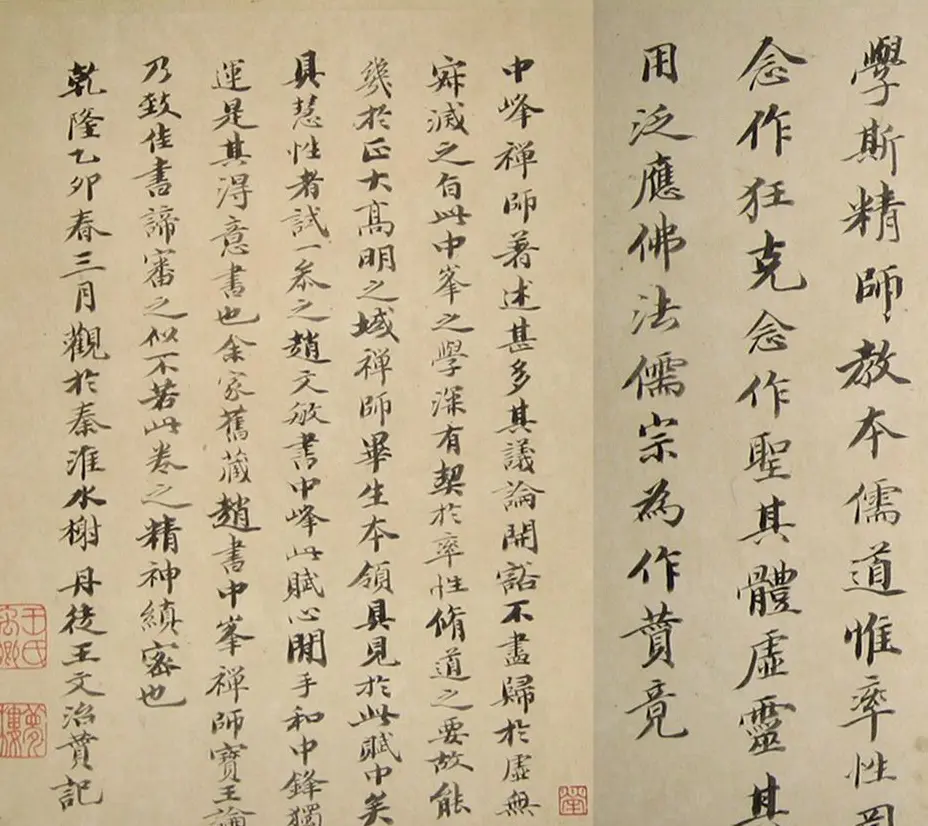 學斯精師教本儒道惟率性罔
念作狂克念作聖其體虛靈其
用泛應佛法儒宗為作贊竟
中峰禅師著述甚多其議論開豁不盡歸於虛無
寂滅之旨此中峯之學深有契於率性脩道之要故能
幾於正大高明之域禅師畢生本領具見於此賦中矣
具慧性者試一叅之趙文敏書中峰此賦心閒手和中鋒獨
運是其得意書也余家舊藏趙書中峯禅師寶王論
乃致佳書諦審之似不若此卷之精神縝密也
乾隆乙卯春三月觀於秦淮水榭 丹徒王文治贊記
王氏禹卿
夢樓